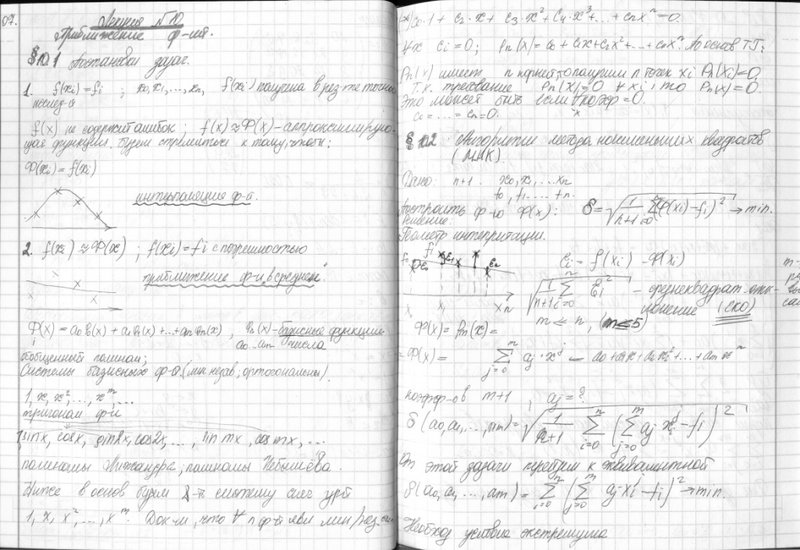 07.
Лекция №10
Приближение ф-ий.
§10.1 Постановки задач.
1. f(xi) = fi ; x0, x1, ..., xn, f(xi) получена в рез-те точн
f(x) не содержит ошибок ; f(x) ≈ Φ(x) - аппроксимирую-
щая функция. Будем стремиться к тому, чтобы:
Φ(xi) = f(xi)
интерполяция ф-й.
2. f(x) ≈ Φ(x) ; f(xi) = fi с погрешностью
приближение ф-и "в среднем"
Φ(x) = a0 φ0(x) + a1 φ1(x) + ... + am φm(x) , φi(x) - базисные функции
a0...am числа
обобщенный полином;
Системы базисных ф-й (лин. незав., ортогональны).
1, x, x², ..., x^m, ...
тригоном. ф-и
1, sin x, cos x, sin 2x, cos 2x, ..., sin mx, cos mx, ...
полиномы Лежандра, полиномы Чебышёва.
Ниже в основ будем
1, x, x², ..., x^m. Док-ли, что ∀
(*) c0·1 + c1·x + c2·x² + ... + cn x^n = 0
∀x ci = 0; Pn(x) = c0 + c1x + c2x² + ... + cnx^n. По основ
Pn(x) имеет n корней, то получим n точек xi Pn(xi) = 0
Т.к. требование Pn(x) = 0 ∀ xi, то Pn(x) = 0.
Это может быть если ∀ коэф = 0.
c0 = ... = cn = 0.
§10.2 Алгоритм метода наименьших квадратов
(МНК).
Дано n+1 x0, x1, ... xn
f0, f1, ... fn
Построить ф-ю Φ(x): δ = √(1/(n+1) Σ(Φ(xi) - fi)²) → min.
Геометр интерпретация.
εi = f(xi) - Φ(xi)
√(1/(n+1) Σ_{i=0}^{n} εi²) - среднеквадрат. откло-
нение (СКО)
m ≤ n, (m ≤ 5)
Φ(x) = Pm(x) =
= Φ(x) = Σ_{j=0}^{m} aj · x^j = a0 + a1x + a2x² + ... + am x^m
коэфф-ов m+1, aj = ?
δ(a0, a1, ..., am) = √(1/(n+1) Σ_{i=0}^{n} (Σ_{j=0}^{m} aj xi^j - fi)²)
От этой задачи перейдем к эквивалентной
δ(a0, a1, ..., am) = Σ_{i=0}^{n} (Σ_{j=0}^{m} aj · xi^j - fi)² → min.
Необход условия экстремума